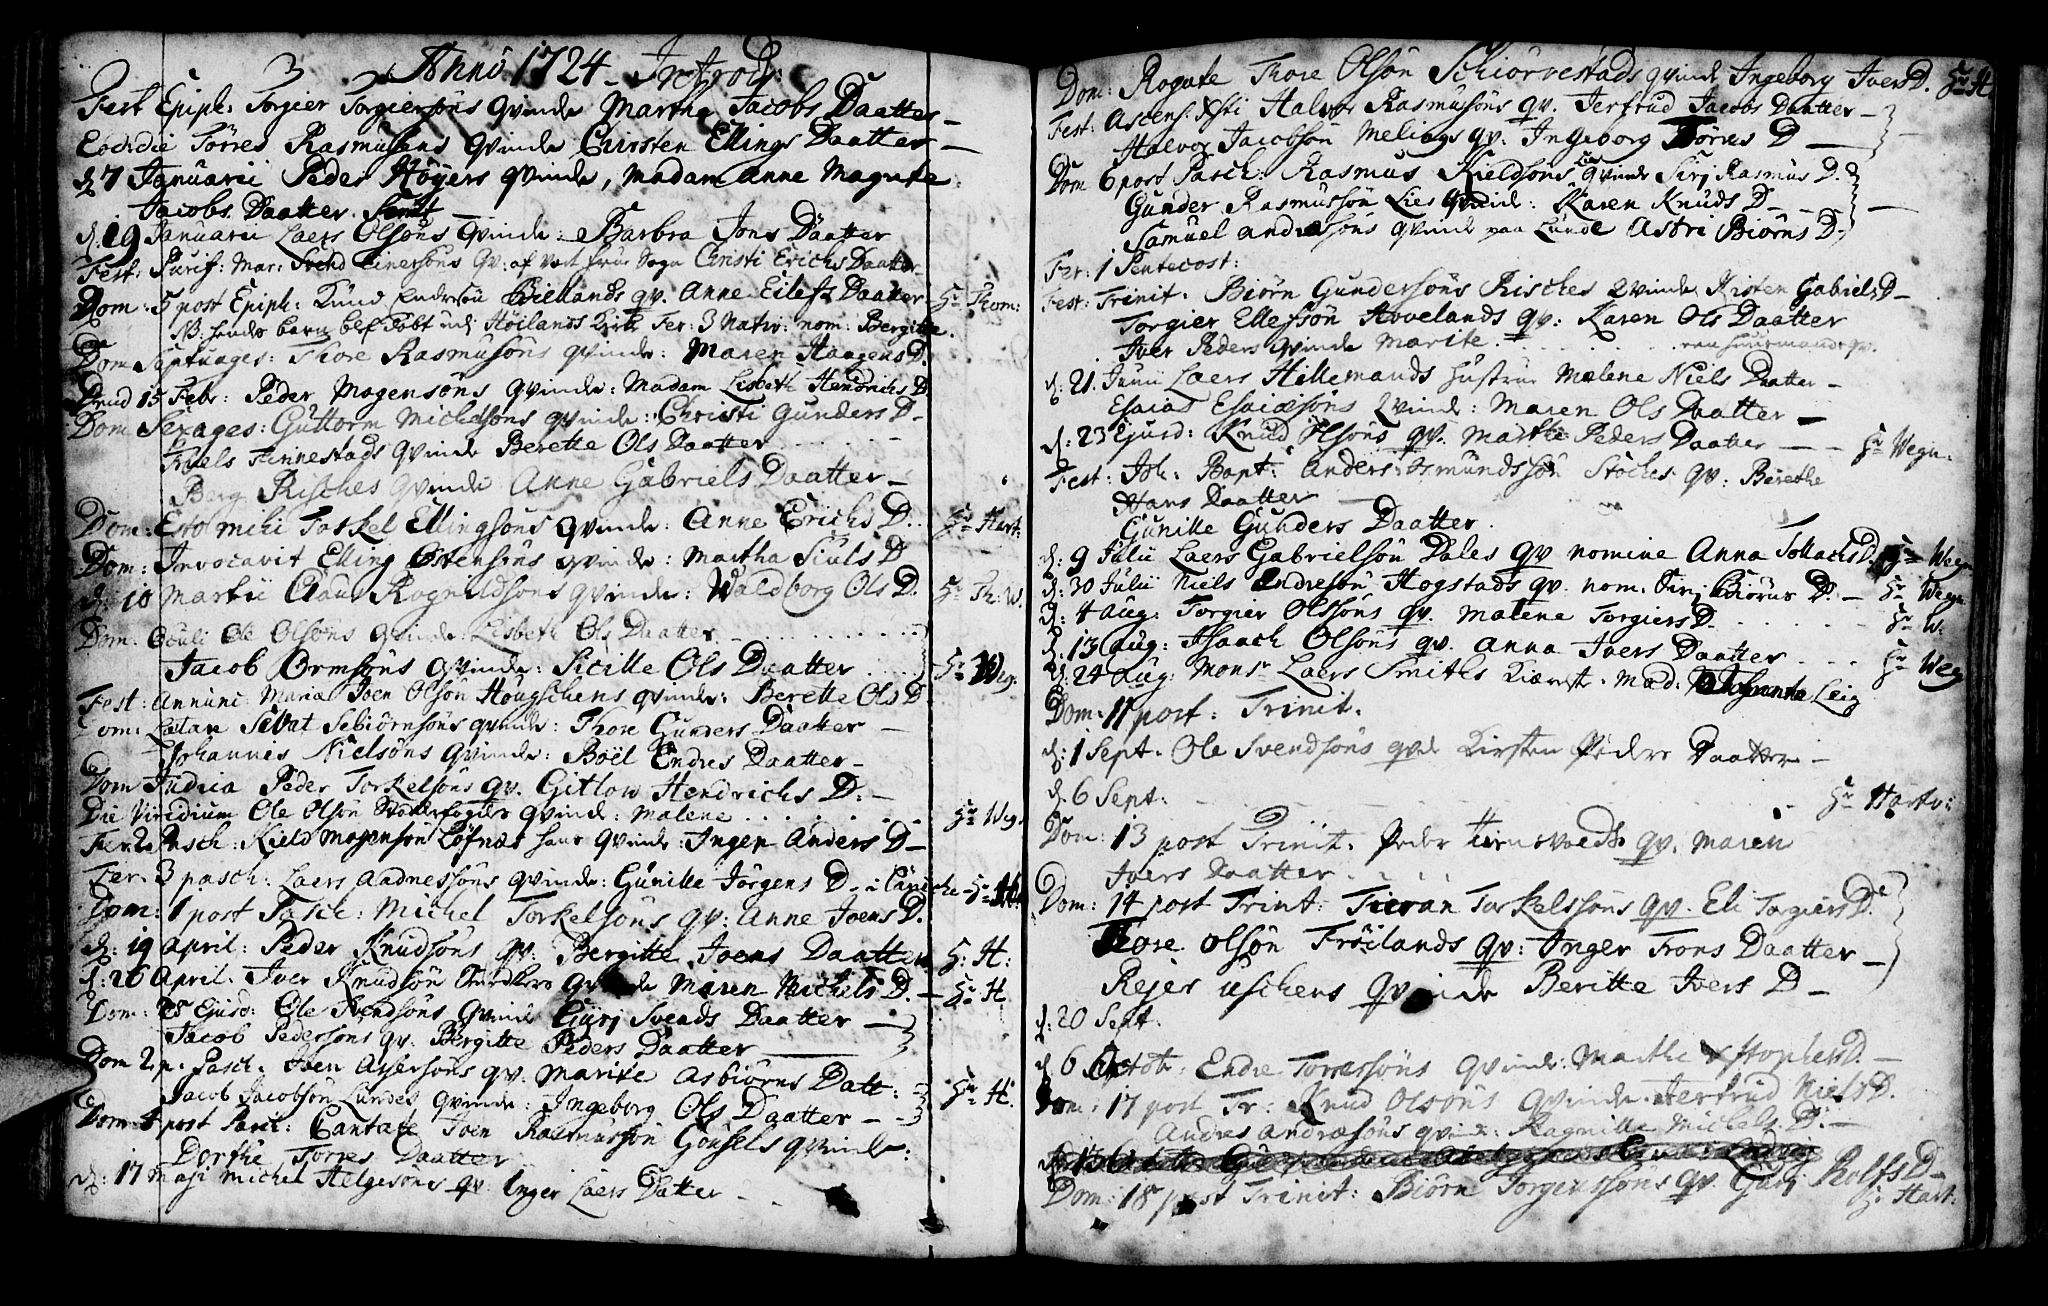 Anno 1724 Introd:
Fest Epiph: Torgier Torgiersöns qvinde Martha Jacobs Daatter
Eod: die Törres Rasmusens qvinde Chirsten Ellings Daatter
d 7 Januarii Peder Höyers qvinde, Madam Anne Magrete
Jacobs Daatter
d. 19 Januarii Laers Olsöns qvinde: Barbra Jons Daatter
Fest: Purif: Mar: Svend Einersöns qv: af Christi Erichs Daatter
Dom: 5 post Epiph: Knud qv. Anne Eilefs Daatter Hr Thom:
NB hendes barn blef döbt udj Höilands Kirke Fer: 3 Nativ: nom: Bergitte
Dom Septuages: Thore Rasmusöns qvinde: Maren Haagens D.
15 Febr: Peder Mogensöns qvinde: Madam Lisbeth Hendrichs D.
Dom Sexages: Guttorm Michelsöns qvinde: Christi Gunders D
Niels Finnestads qvinde Berette Ols Daatter
Berg Risches qvinde Anne Gabriels Daatter
Dom: Esto mihi Torkel Ellingsöns qvinde: Anne Erichs D. Hr Hart:
Dom: Invocavit Elling Östensöns qvinde: Martha Siuls D
d: 10 Martii Clau Rognildsöns qvinde: Waldborg Ols D. Hr Th: W.
Dom: Oculi Ole Olsöns qvinde: Lisbeth Ols Daatter
Jacob Ormsöns qvinde: Sicille Ols Daatter Hr Weg:
Fest: Annunc Mariæ Joen Olsön Haugschens qvinde: Berette Ols D
Dom: Lætare Sivat Sebiörnsöns qvinde: Thore Gunders Daatter
Johannis Nielsöns qvinde: Böel Endres Daatter
Dom Judica Peder Torkelsöns qv. Gitlow Hendrichs D:
Die Viridium Ole Olsön qvinde: Malene Hr Weg.
Fer: 2 Pasch: Kield Mogensön Löfnæs hans qvinde: Inger Anders D
Fer. 3 pasch: Laers Aadnessöns qvinde: Gunille Jörgens D Hr H
Dom: 1 post Pasch: Michel Torkelsöns qv: Anne Joens D.
d: 19 april: Peder Knudsöns qv. Bergitte Joens Daatter H: H:
d: 26 April. Iver Knudsön qvinde Maren Michels D. Hr H
Dom: Ejusd: Ole Svendsöns qvinde Gurj Svends Daatter
Jacob Pedersöns qv. Bergitte Peders Daatter
Dom 2 p. Pasch. Joen Assersöns qv: Marite Asbiörns Datt:
Jacob Jacobsön Lundes qvinde: Ingeborg Ols Daatter Hr H.
Dom 4 post Pasc: Cantate Joen Rasmussön Gousels qvinde:
Dorthe Torres Daatter
d: 17 Maji Michel Helgesöns qv Inger Laers Datter
Dom: Rogate Thore Olsön Schiörvestads qvinde Ingeborg Ivers D. Hr H
Fest: Ascens: Xsti Halvor Rasmusöns qv. Jertrud Jacobs Daatter
Halvor Jacobsön Melings qv. Ingeborg Törres D
Dom 6 post Pasch. Rasmus Kieldsöns qvinde Sirj Rasmus D.
Gunder Rasmussön Lies qvind: Karen Knuds D
Samuel andræsöns qvinde paa Lunde Astri Biörns D.
Fer: 1 Pentecost:
Fest: Trinit. Biörn Gundersöns Risches qvinde Kisten Gabriels D
Torgier Ellefsön Hovelands qv: Karen Ols Daatter
Iver Peders qvinde Marite
d: 21. Junii Laers Hillemands Hustrue Malene Niels Daatter
Esaias Esaiæsöns qvind: Maren Ols Daatter
d: 23 Ejusd: Knud Olsöns qv. Marthe Peders Daatter Hr Wegn.
Fest: Joh: Bapt: Anders Osmundssön Stöches qv: Berethe
Hans Daatter
Gunille Gunders Daatter.
d: 9 Julii Laers Gabrielsön Dales qv nomine Anna Tollachs D. Hr Weg
d: 30 Julii Niels Endresön Hogstads qv. nom. Sirj Biörns D. Hr Weg
d: 4 Aug: Torgier Olsöns qv. Malene Torgiers D. Hr W.
d: 13 Aug: Isaach Olsöns qv. Anna Ivers Daatter
d: 24 Aug: Monsr Laers Smiths Kiæreste. Mad: Johanna Leig Hr Weg
Dom: 11 post: Trinit.
d: 1 Sept. Ole Svendsöns qvd Kirsten Peders Daatter
d. 6 Sept: Hr Hartv:
Dom: 13 post Trinit. Peder qv. Maren
Ivers Daatter
Dom: 14 post Trint: Torkelssöns qv. Eli Torgiers D.
Thore Olsön Fröilands qv: Inger Trons Daatter
Rejer Uschens qvinde Beritte Ivers D
d: 20 Sept.
d 6 Octob: Endre Torressöns qvinde: Marthe Xstophers D.
Dom: 17 post Tr: Knud Olsöns qvinde Jertrud Niels D.
Andres Andræsöns qvind: Ragnille Michels D.
Dom: 18 post Trinit: Biörn Jorgenssöns qv. Gurj Rolfs D
Hr Hart.